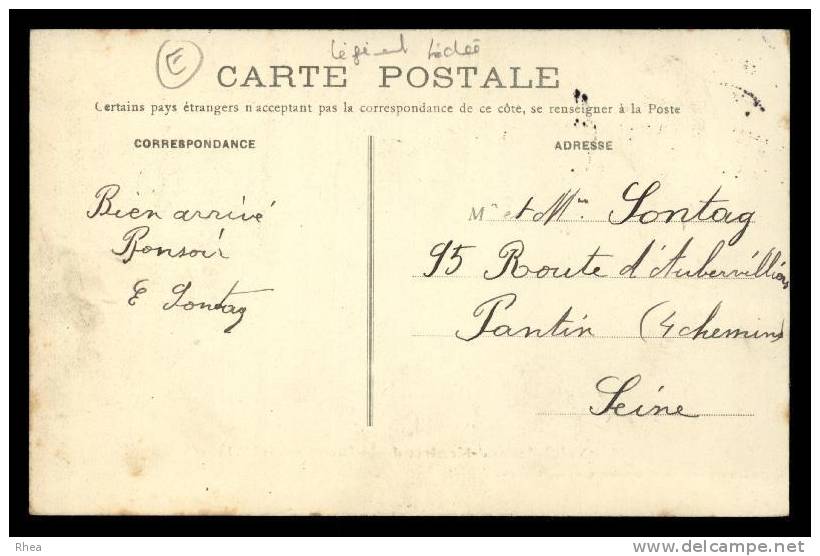 E
CARTE POSTALE
Certains pays étrangers n'acceptant pas la correspondance de ce côté, se renseigner à la Poste
CORRESPONDANCE
Bien arrivé
Bonsoir
E Sontag
ADRESSE
Mr et Mme Sontag
95 Route d'Aubervilliers
Pantin (4 chemins
Seine
Rhea
www.delcampe.net